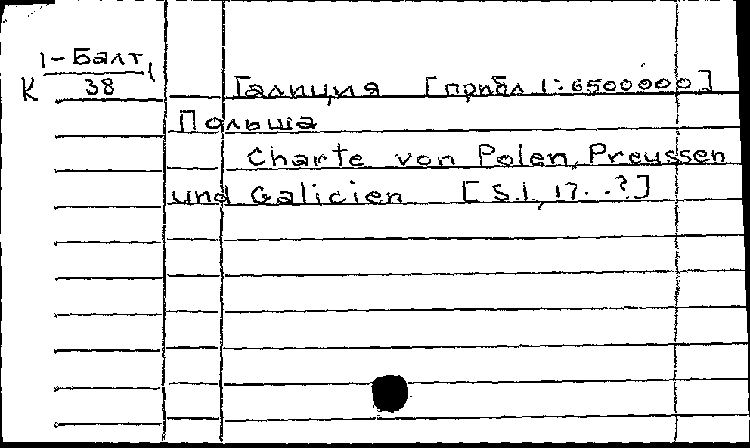 К 1-Балт, / 38
Галиция [прибл 1:6500000]
Польша
Charte von Polen, Preussen
und Galicien [S.l, 17..?]